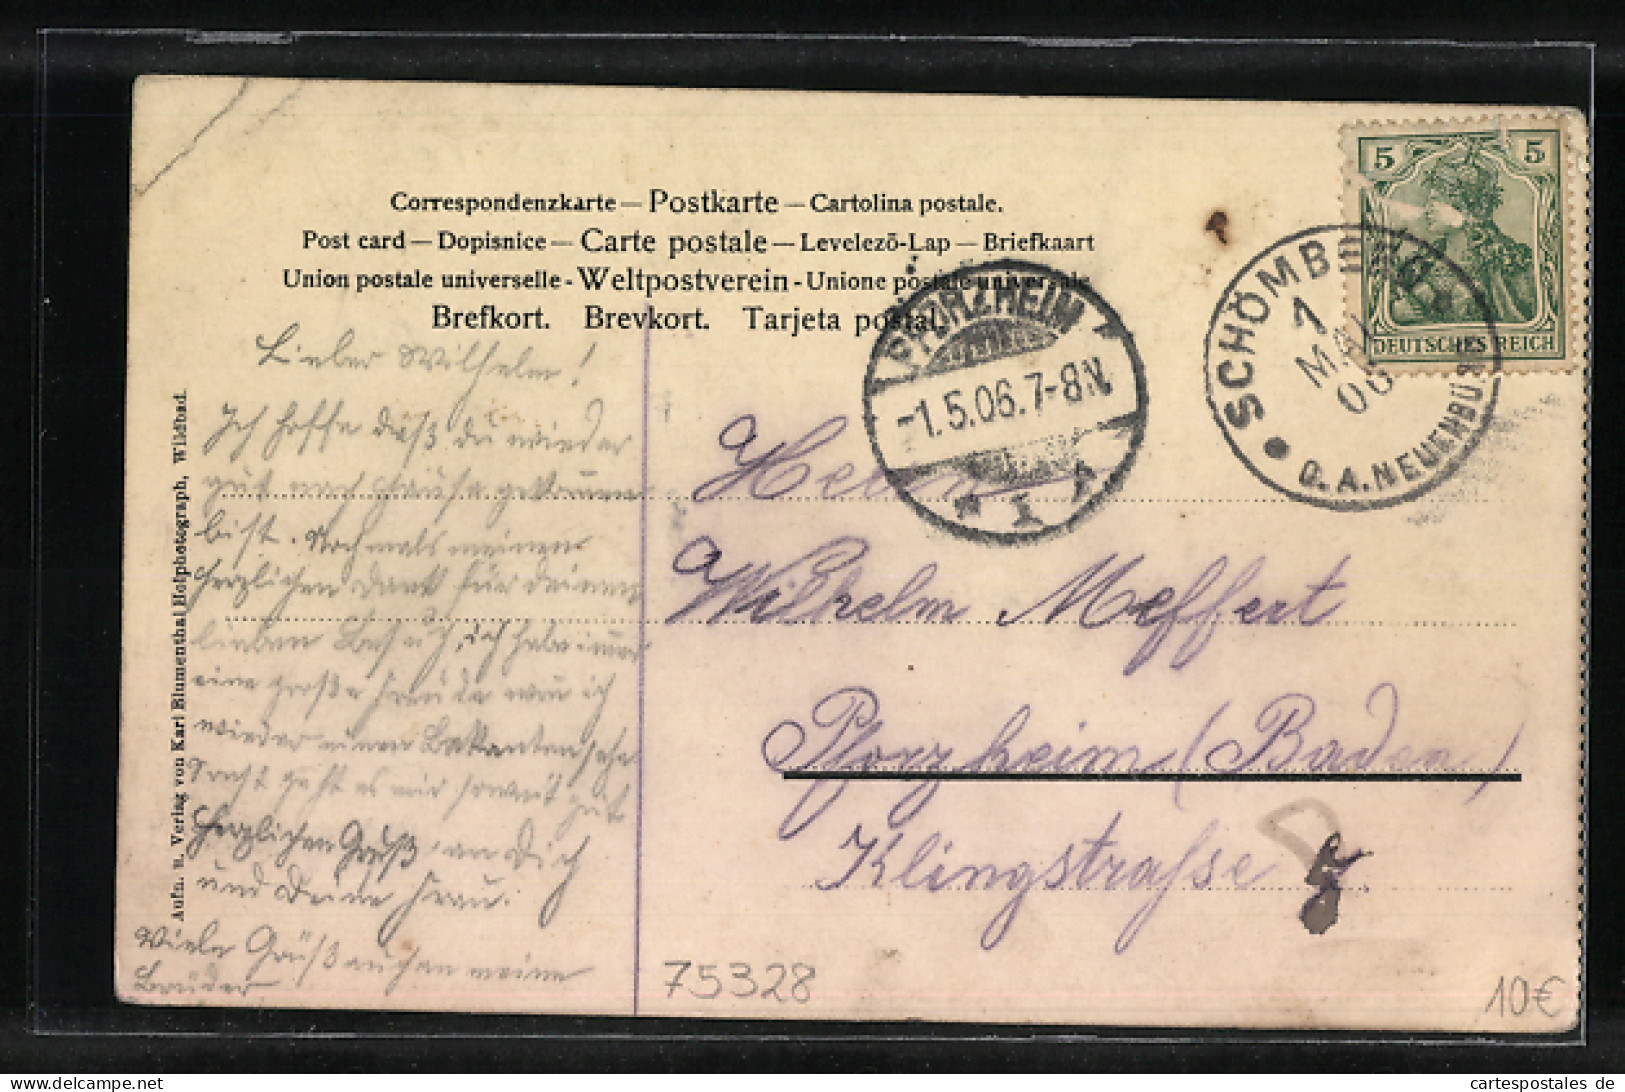 Correspondenzkarte — Postkarte — Cartolina postale.
Post card — Dopisnice — Carte postale — Levelező-Lap — Briefkaart
Union postale universelle - Weltpostverein - Unione postale universale
Brefkort. Brevkort. Tarjeta postal.
5 5
DEUTSCHES REICH
SCHÖMBERG
1
MAI
06
O.A. NEUENBÜRG
PFORZHEIM
-1.5.06.7-8N
1
Lieber Wilhelm!
Ich hoffe daß du wieder
gut nach Hause gekommen
bist. Nochmals meinen
herzlichen Dank für deinen
lieben Besuch, ich habe immer
eine große Freude wen ich
wieder einen Bekanten sehe
Sonst geht es mir soweit gut
Herzlichen Gruß an Dich
und Deine Frau.
Viele Grüß auch an meine
Brüder
Herrn
Wilhelm Meffert
Pforzheim (Baden)
Klingstrasse
Aufn. u. Verlag von Karl Blumenthal Hofphotograph, Wildbad.
75328
10€
cartespostales de